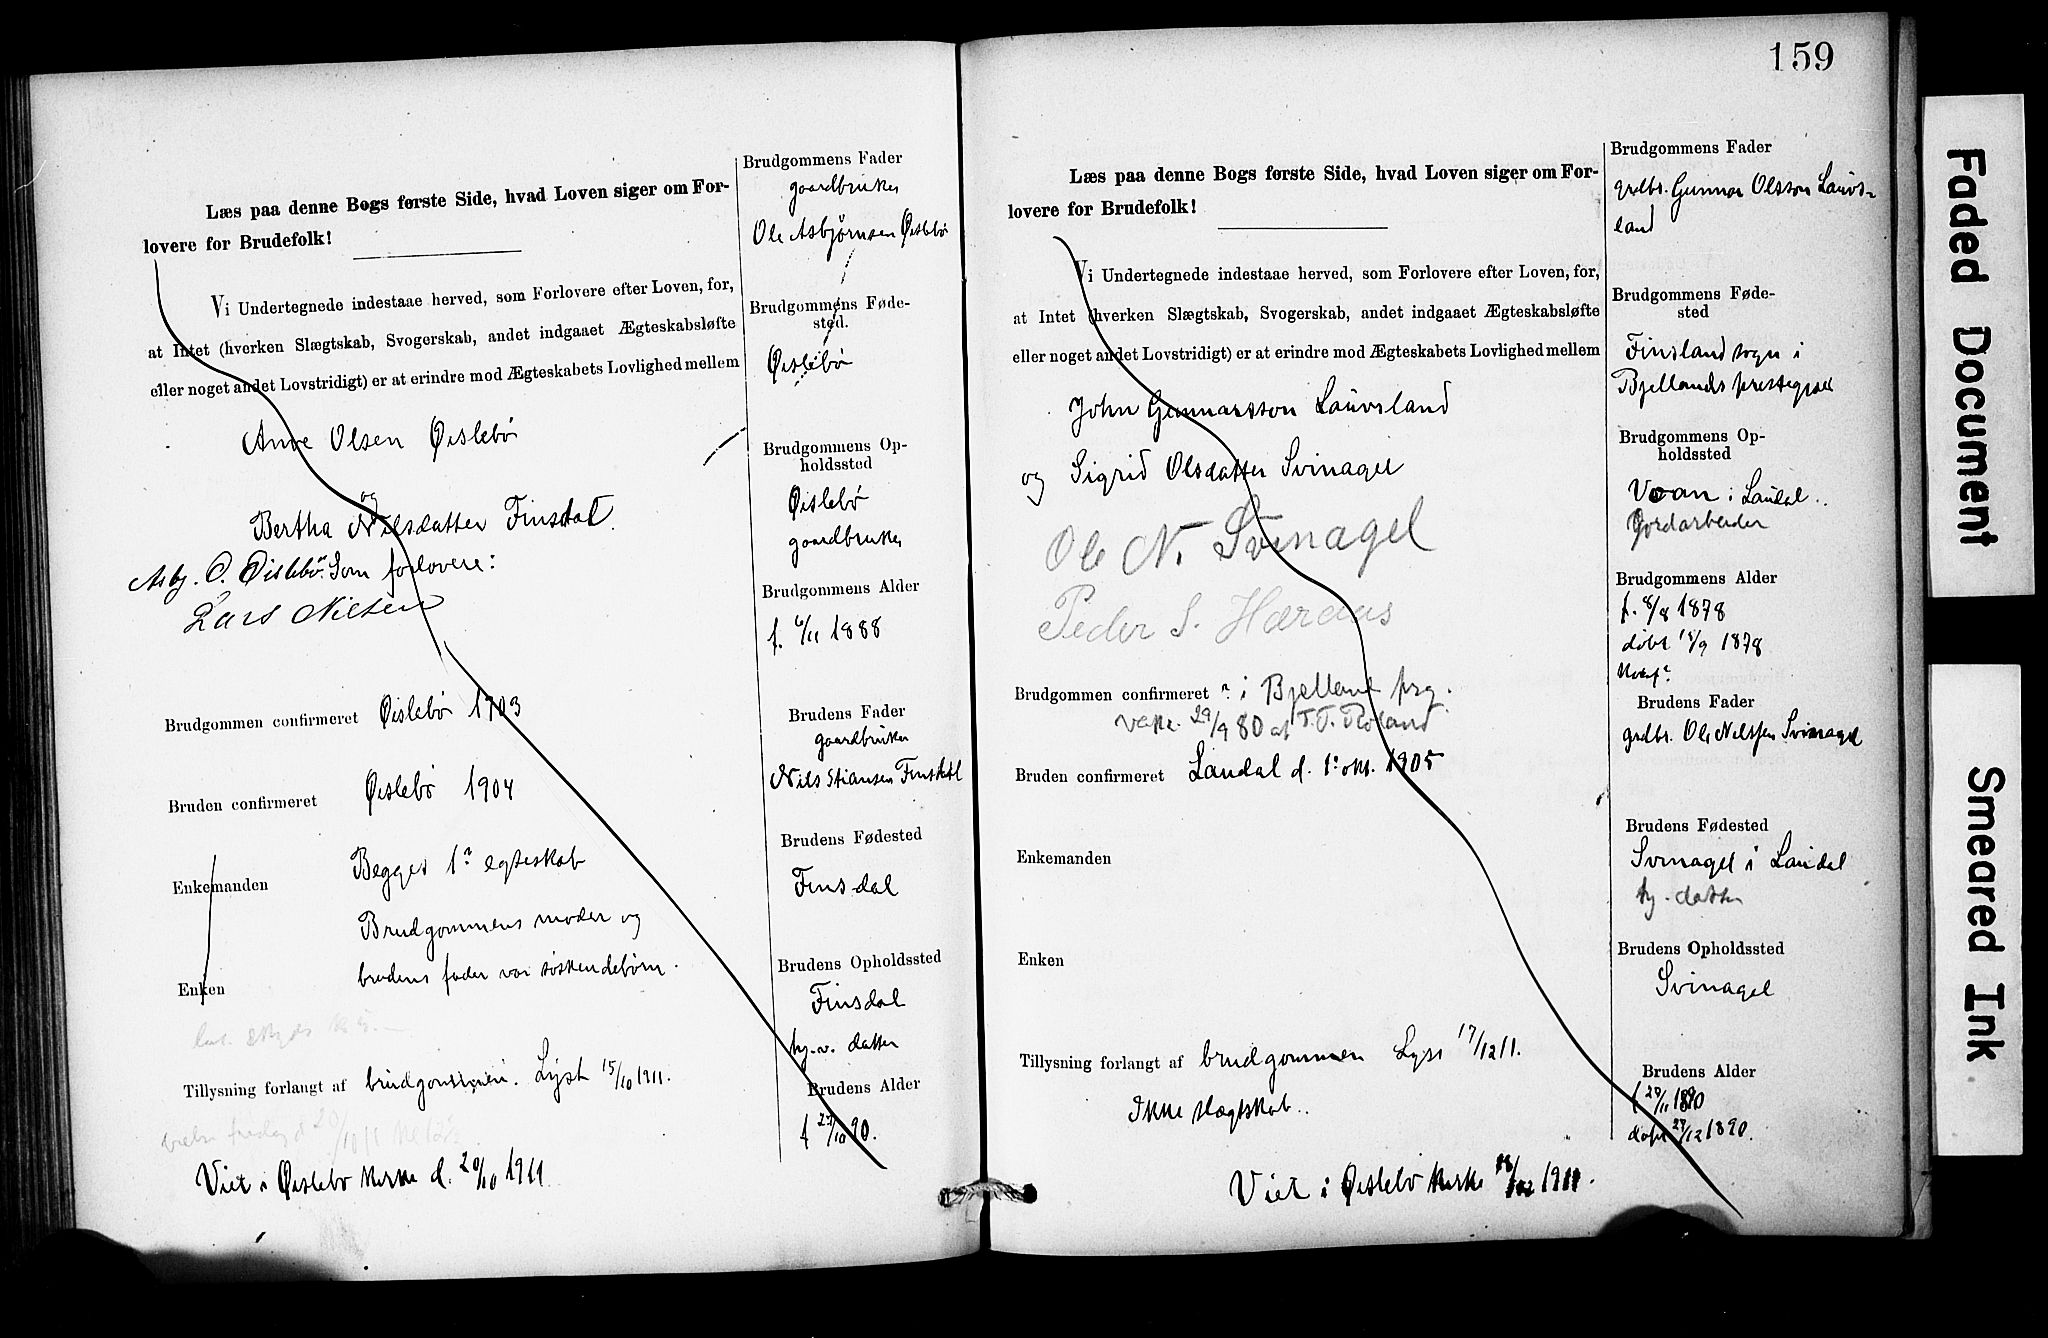 Læs paa denne Bogs første Side, hvad Loven siger om For-
lovere for Brudefolk!
Vi Undertegnede indestaae herved, som Forlovere efter Loven, for,
at Intet (hverken Slægtskab, Svogerskab, andet indgaaet Ægteskabsløfte
eller noget andet Lovstridigt) er at erindre mod Ægteskabets Lovlighed mellem
Olsen Øislebø
og
Bertha Nilsdatter Finsdal.
Asbj. O. Øislebø. Som forlovere:
Lars Nilsen
Brudgommen confirmeret Øislebø 1903
Bruden confirmeret Øislebø 1904
Enkemanden Begges 1ʳ egteskab
Brudgommens moder og
Enken brudens fader var søskendebørn.
Tillysning forlangt af brudgommen. Lyst 15/10 1911.
Viet i Øislebø kirke d. 20/10 1911
Brudgommens Fader
gaardbruker
Ole Asbjørnsen Øislebø
Brudgommens Føde-
sted.
Øislebø
Brudgommens Op-
holdssted
Øislebø
gaardbruker
Brudgommens Alder
f. 6/11 1888
Brudens Fader
gaardbruker
Nils Stiansen Finsdal
Brudens Fødested
Finsdal
Brudens Opholdssted
Finsdal
hj.v. datter
Brudens Alder
f 27/10 90.
159
Læs paa denne Bogs første Side, hvad Loven siger om For-
lovere for Brudefolk!
Vi Undertegnede indestaae herved, som Forlovere efter Loven, for,
at Intet (hverken Slægtskab, Svogerskab, andet indgaaet Ægteskabsløfte
eller noget andet Lovstridigt) er at erindre mod Ægteskabets Lovlighed mellem
John Gunnarsson Lauvsland
og Sigrid Olsdatter Svinagel
Ole N. Svinagel
Peder S. Haraas
Brudgommen confirmeret ? i Bjelland prg.
vakc. 29/9 80 af T. T. Røiland
Bruden confirmeret Laudal d. 1ᵉ okt. 1905
Enkemanden
Enken
Tillysning forlangt af brudgommen Lyst 17/12 11.
Ikke slægtskab..
Viet i Øislebø kirke 28/12 1911.
Brudgommens Fader
grdbr. Gunnar Olsson Lauvs-
land
Brudgommens Føde-
sted
Finsland sogn i
Bjellands prestegjæld
Brudgommens Op-
holdssted
i Laudal.
Gordarbeider
Brudgommens Alder
f. 8/8 1878
døbt 18/9 1878
Brudens Fader
grdbr. Ole Nelssen Svinagel
Brudens Fødested
Svinagel i Laudal
hj. datter
Brudens Opholdssted
Svinagel
Brudens Alder
f 20/11 1890
døpt 27/12 1890.
Faded Document
Smeared Ink